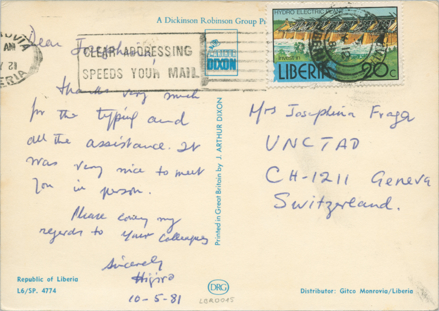 A Dickinson Robinson Group
Dear Josephina,
CLEAR ADDRESSING
SPEEDS YOUR MAIL
DIXON
HYDRO ELECTRIC
LIBERIA 20c
Thanks very much
for the typing and
all the assistance. It
was very nice to meet
you in person.
Please convey my
regards to your colleagues
Sincerely
10-5-81
Republic of Liberia
L6/SP. 4774
Printed in Great Britain by J. ARTHUR DIXON
DRG
Mrs Josephina Fraga
UNCTAD
CH-1211 Geneva
Switzerland.
Distributor: Gitco Monrovia/Liberia